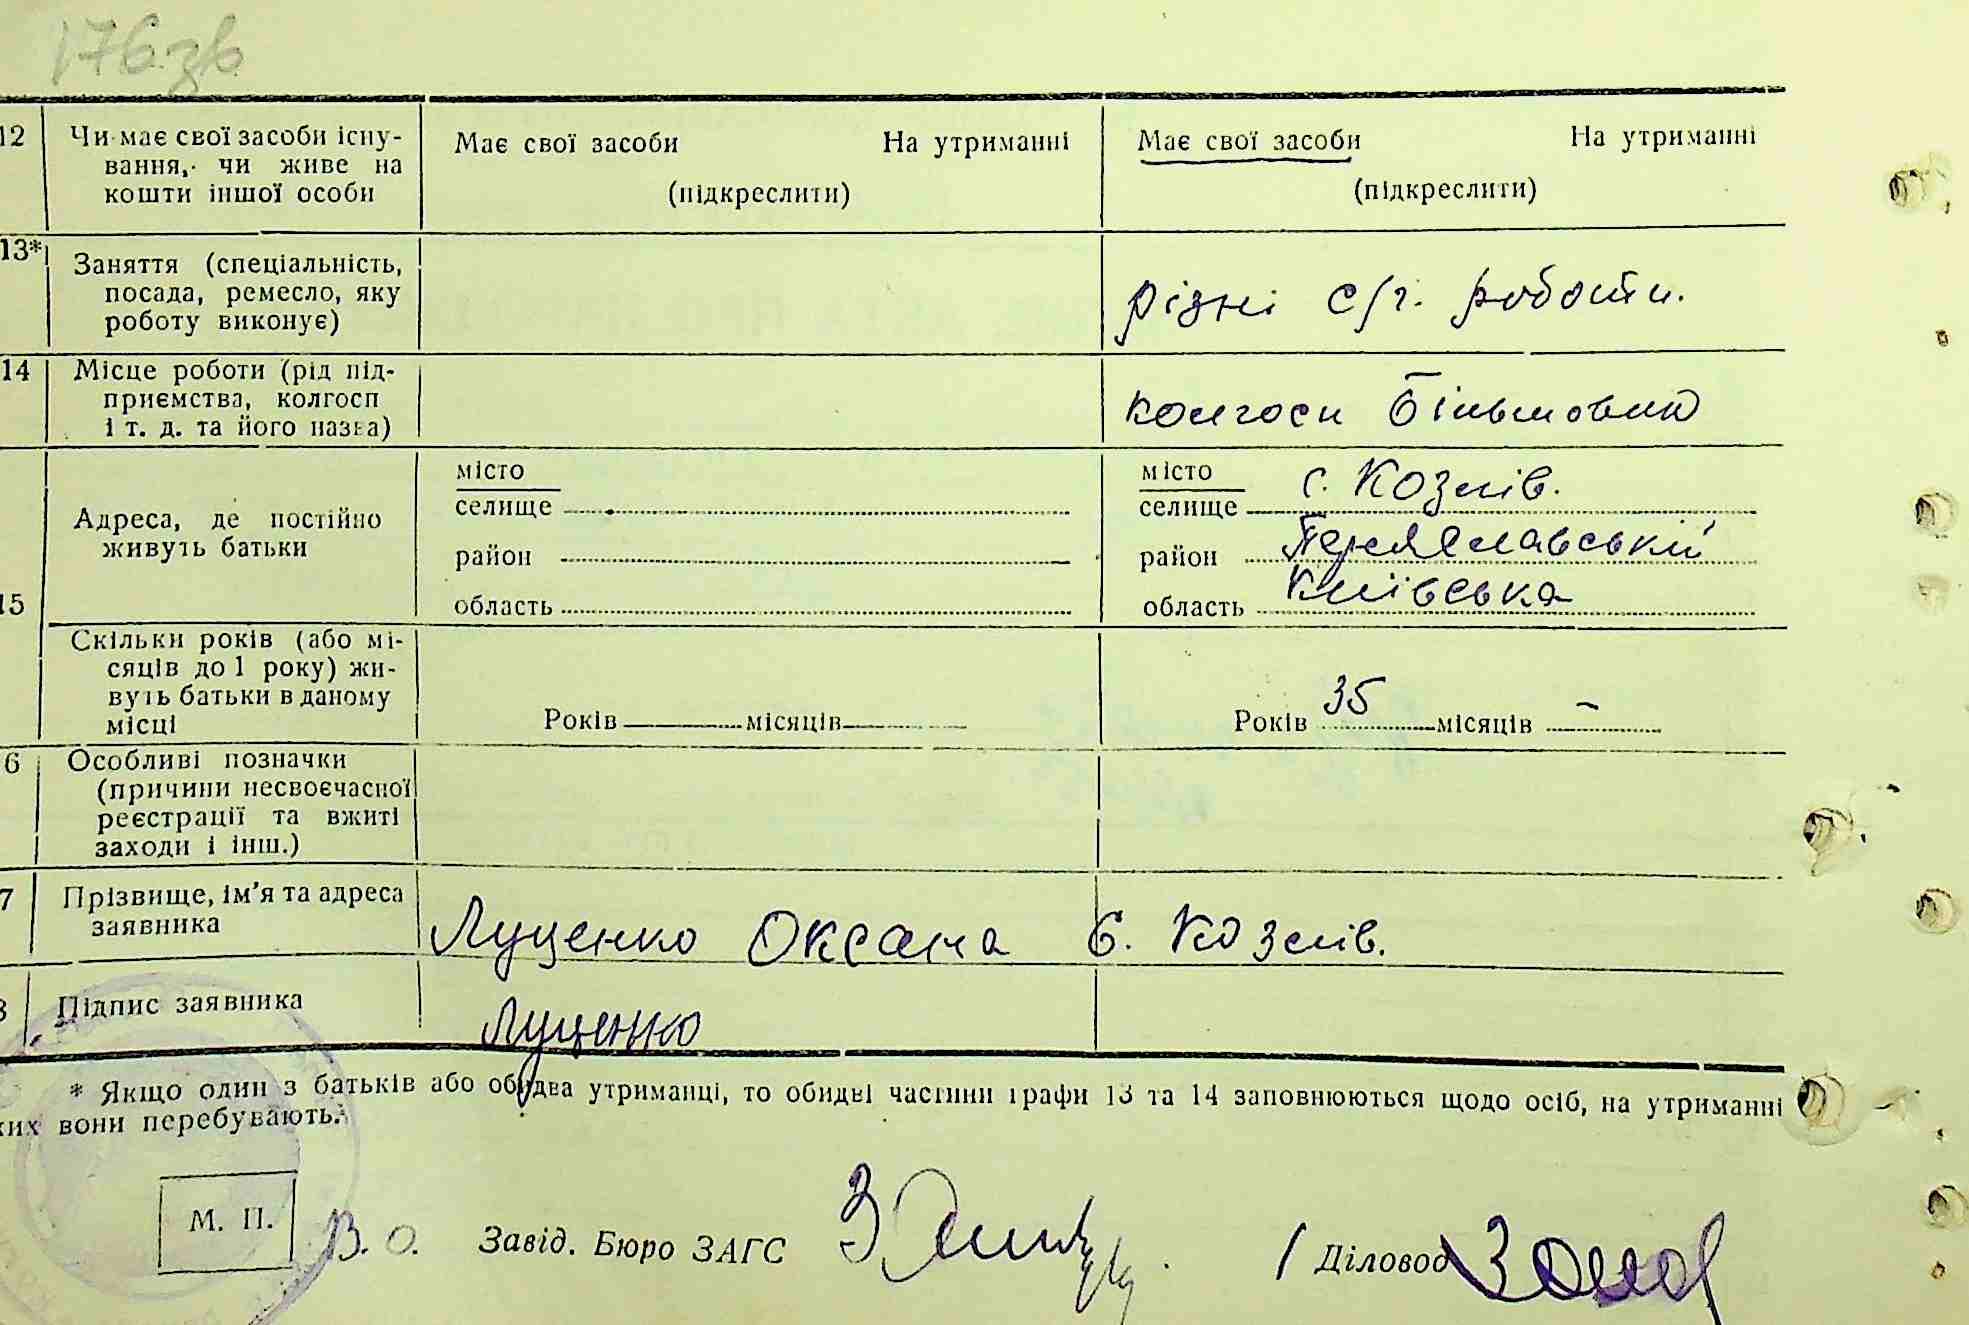 176 зв
12 Чи має свої засоби існу-
вання, чи живе на
кошти іншої особи
Має свої засоби На утриманні
(підкреслити)
Має свої засоби На утриманні
(підкреслити)
13* Заняття (спеціальність,
посада, ремесло, яку
роботу виконує)
різні с/г. роботи.
14 Місце роботи (рід під-
приємства, колгосп
і т. д. та його назва)
колгосп Більшовик
15 Адреса, де постійно
живуть батьки
місто
селище
район
область
місто
селище с. Козлів.
район Переяславський
область Київська
Скільки років (або мі-
сяців до 1 року) жи-
вуть батьки в даному
місці
Років місяців
Років 35 місяців –
6 Особливі позначки
(причини несвоєчасної
реєстрації та вжиті
заходи і інш.)
7 Прізвище, ім'я та адреса
заявника
Луценко Оксана с. Козлів.
8 Підпис заявника
Луценко
* Якщо один з батьків або обидва утриманці, то обидві частини графи 13 та 14 заповнюються щодо осіб, на утриманні
ких вони перебувають.
М. П.
В. О. Завід. Бюро ЗАГС
Діловод